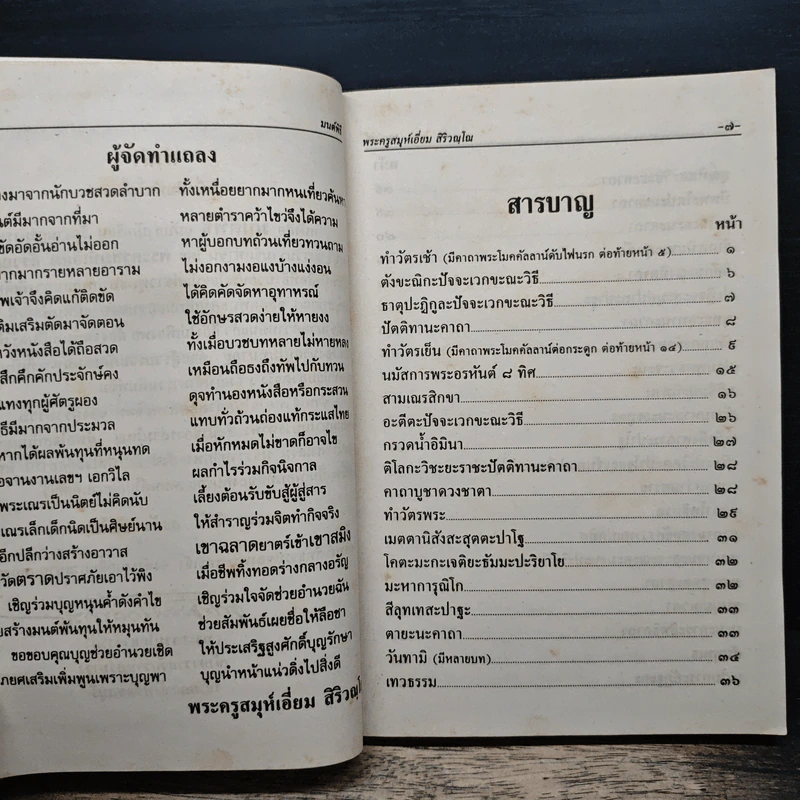 มนต์พิธี
ผู้จัดทำแถลง
มาจากนักบวชสวดลำบาก ทั้งเหนื่อยยากมากหนเที่ยวค้นหา
มีมากจากที่มา หลายตำราคว้าไขว่จึงได้ความ
ขัดอัดอั้นอ่านไม่ออก หาผู้บอกบทถ้วนเที่ยวทวนถาม
มากรายหลายอาราม ไม่งอกงามงอแงบ้างแง่งอน
จึงคิดแก้ติดขัด ได้คิดคัดจัดหาอุทาหรณ์
เติมเสริมตัดมาจัดตอน ใช้อักษรสวดง่ายให้หายงง
หวังหนังสือได้ถือสวด ทั้งเมื่อบวชบทหลายไม่หายหลง
คึกคักประจักษ์คง เหมือนถือธงถึงทัพไปกับทวน
แทงทุกผู้ศัตรูผอง ดุจทำนองหนังสือหรือกระสวน
มีมากจากประมวล แทบทั่วถ้วนถ่องแท้กระแสไทย
หากได้ผลพันทุนที่หนุนทด เมื่อหักหมดไม่ขาดก็อาจไข
งานเลขฯ เอกวิไล ผลกำไรร่วมกิจนิจกาล
พระเณรเป็นนิตย์ไม่คิดนับ เลี้ยงต้อนรับขับสู้ผู้สู่สาร
เณรเล็กเด็กนิดเป็นศิษย์นาน ให้สำราญร่วมจิตทำกิจจริง
อีกปลีกว่างสร้างอาวาส เขาฉลาดยาตร์เข้าเขาสมิง
วัดตราดปราศภัยเอาไว้พิง เมื่อชีพทิ้งทอดร่างกลางอรัญ
เชิญร่วมบุญหนุนค้ำดังคำไข เชิญร่วมใจจัดช่วยอำนวยฉัน
สร้างมนต์พันทุนให้หมุนทัน ช่วยสัมพันธ์เผยชื่อให้ลือชา
ขอขอบคุณบุญช่วยอำนวยเชิด ให้ประเสริฐสูงศักดิ์บุญรักษา
ยศเสริมเพิ่มพูนเพราะบุญพา บุญนำหน้าแน่วดิ่งไปสิ่งดี
พระครูสมุห์เอี่ยม สิริวณฺโ
พระครูสมุห์เอี่ยม สิริวณฺโณ -๗-
สารบาญ
หน้า
ทำวัตรเช้า (มีคาถาพระโมคคัลลาน์ดับไฟนรก ต่อท้ายหน้า ๕) ๑
ตังขะณิกะปัจจะเวกขะณะวิธี ๖
ธาตุปะฏิกูละปัจจะเวกขะณะวิธี ๗
ปัตติทานะคาถา ๘
ทำวัตรเย็น (มีคาถาพระโมคคัลลาน์ต่อกระดูก ต่อท้ายหน้า ๑๔) ๙
นมัสการพระอรหันต์ ๘ ทิศ ๑๕
สามเณรสิกขา ๑๖
อะตีตะปัจจะเวกขะณะวิธี ๒๖
กรวดน้ำอิมินา ๒๗
ติโลกะวิชะยะราชะปัตติทานะคาถา ๒๘
คาถาบูชาดวงชาตา ๒๘
ทำวัตรพระ ๒๙
เมตตานิสังสะสุตตะปาโฐ ๓๑
โคตะมะกะเจติยะธัมมะปะริยาโย ๓๒
มะหาการุณิโก ๓๒
สีลุทเทสะปาฐะ ๓๓
ตายะนะคาถา ๓๓
วันทามิ (มีหลายบท) ๓๔
เทวธรรม ๓๖